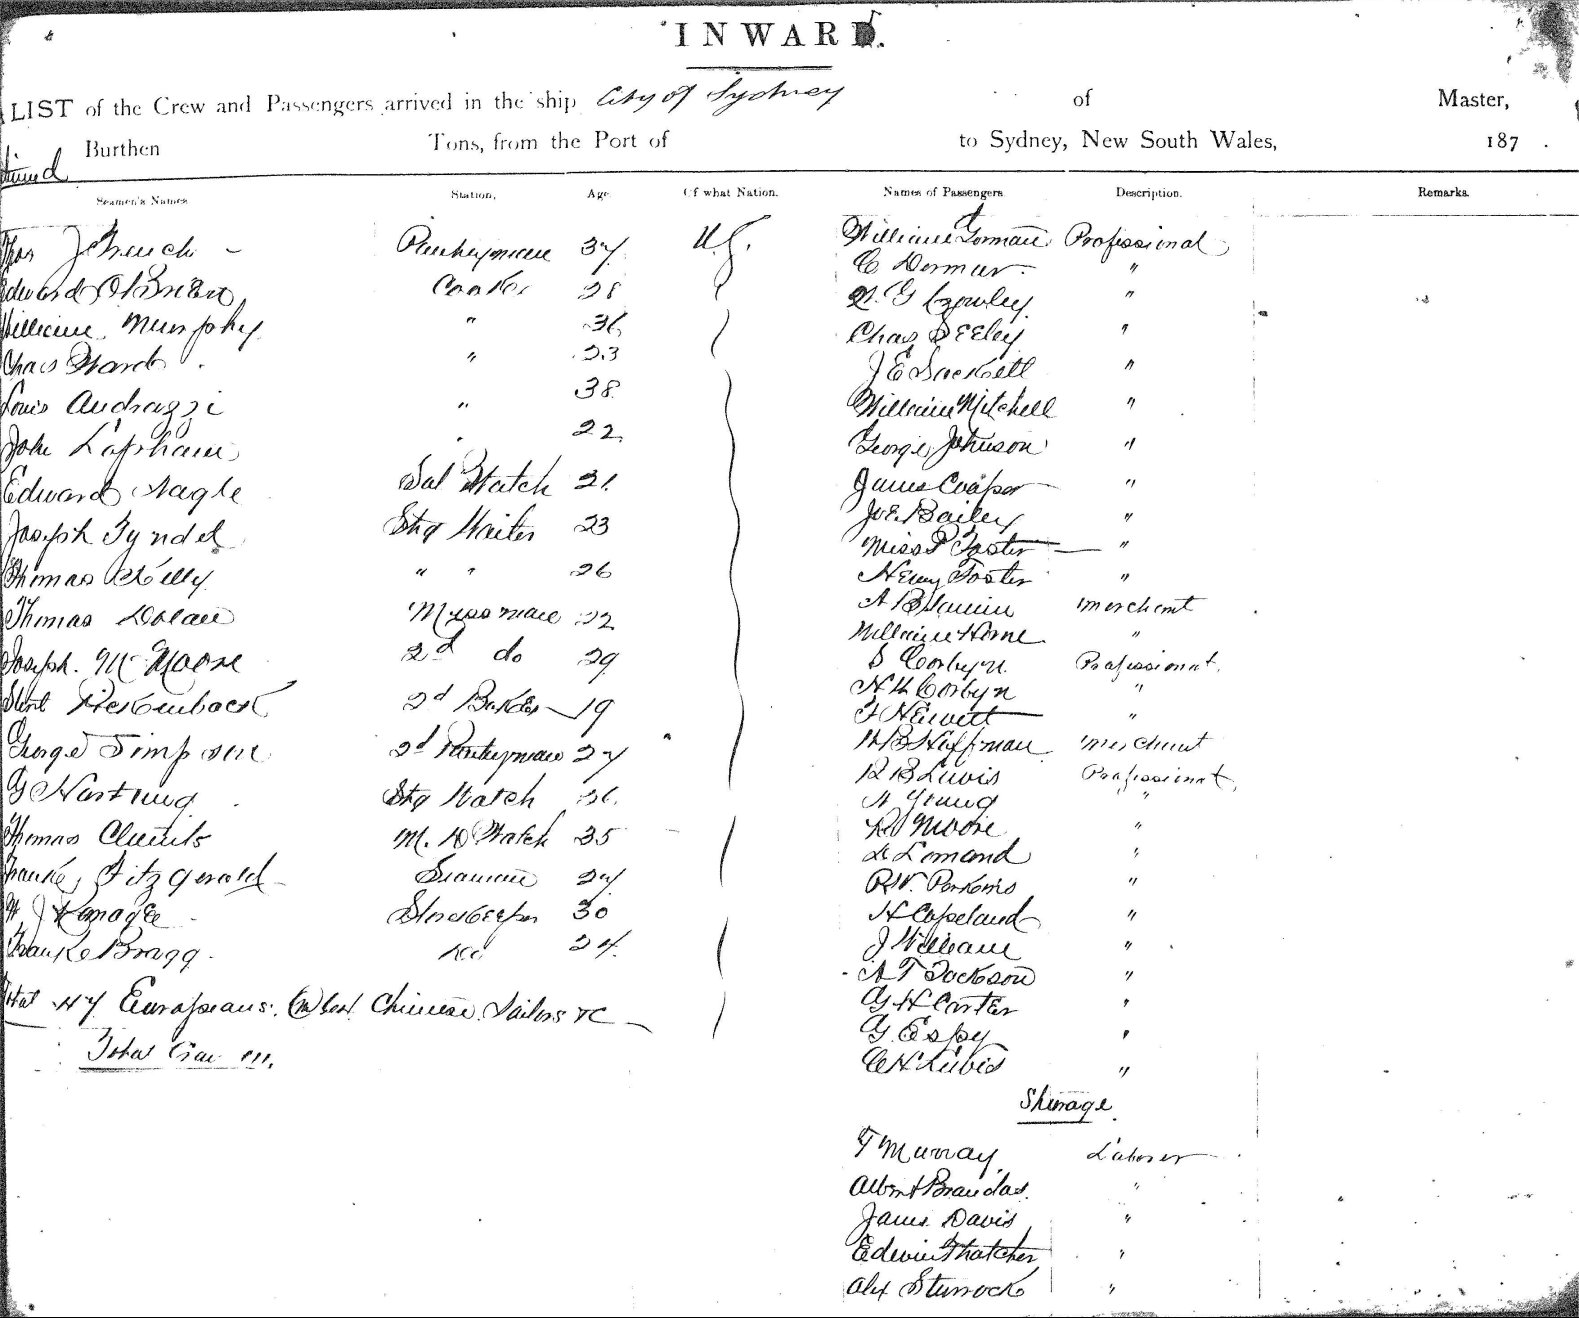 INWARD.
LIST of the Crew and Passengers arrived in the ship City of Sydney of Master,
Burthen Tons, from the Port of to Sydney, New South Wales, 187 .
Seamen's Names Station, Age Of what Nation. Names of Passengers Description. Remarks
Thos J French Pantryman 37 U.S. William Gorman Professional
Edward O'Brien Cook 28 C Dormer "
William Murphy " 36 Crowley "
Chas Ward " 23 Chas Seeley "
Louis Andrazzi " 38 J E Sackett "
John Lapham 22 William Mitchell "
Edward Nagle Sal Watch 21 George Johnson "
Joseph Tyndel Stg Waiter 23 James Cooper "
Thomas Kelly " " 26 Joe Bailey "
Thomas Dolan Messman 22 Miss Foster "
Joseph. Mc Moore 2d do 29 Henry Foster "
2d Baker 19 merchant
George Simpson 2d Pantryman 27 William Horne "
G Hartung Stg Watch 36 S Corbyn Professional
Thomas Clements M. D Watch 35 H Corbyn "
Frank Fitzgerald Seaman 27 Hewett "
Storekeeper 30 Hoffman merchant
Frank Bragg do 24 R B Lewis Professional
Total 47 Europeans. Chinese Sailors &c
Total Crew 111.
A Young "
Moore "
Lomond "
R W. Perkins "
H Copeland "
J William "
A T Jackson "
G H Carter "
G Espy "
C H Lewis "
Steerage
T Murray Laborer
Albert Brandas. "
James Davis "
Edwin Thatcher "
Alex Sturrock "